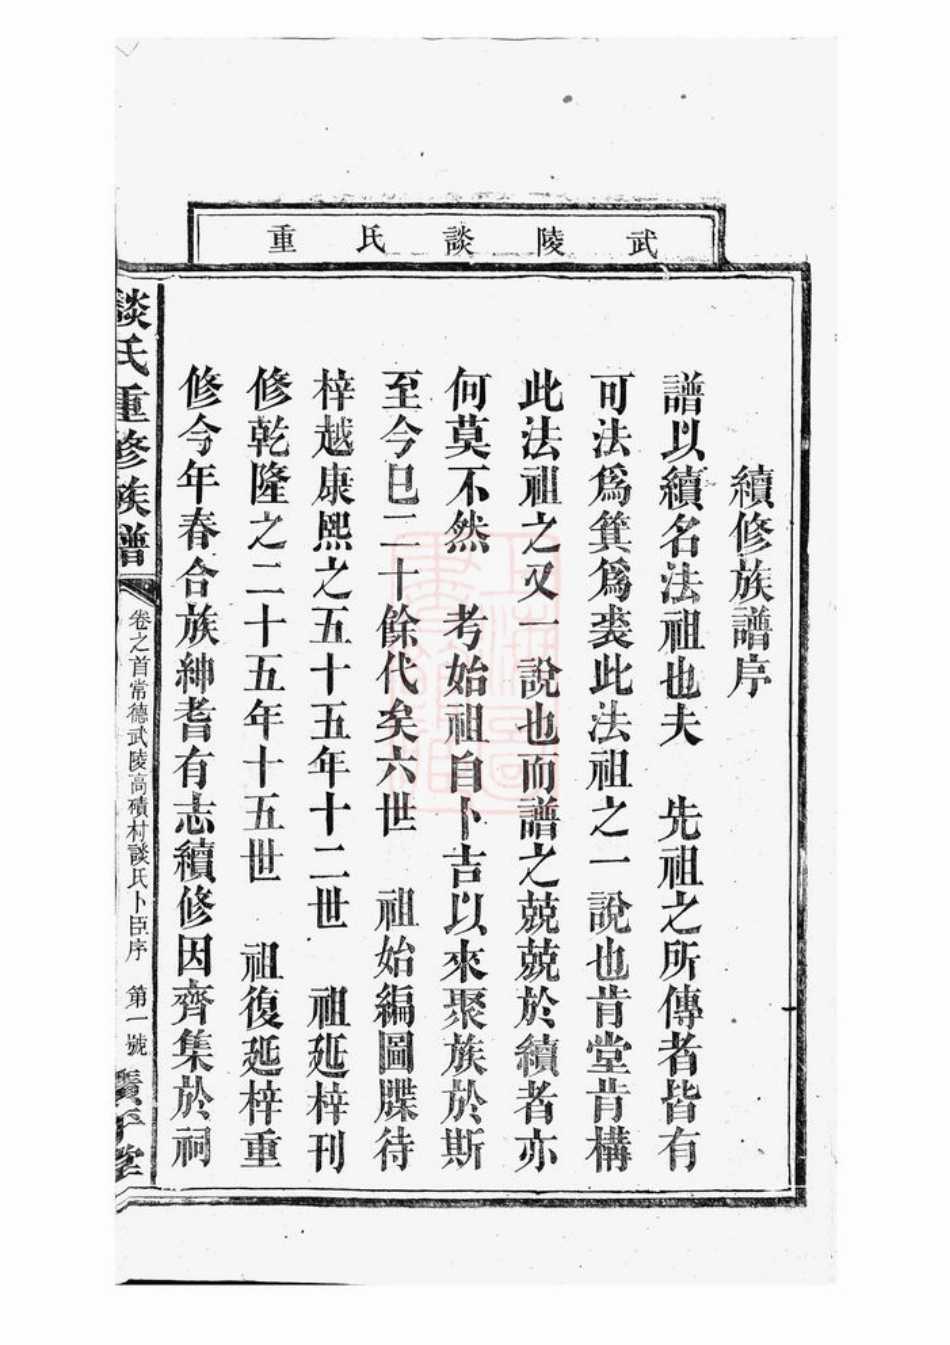 武陵談氏重
續修族譜序
譜以續名法祖也夫　先祖之所傳者皆有
可法爲箕爲裘此法祖之一說也肯堂肯構
此法祖之又一說也而譜之兢兢於續者亦
何莫不然　考始祖自卜吉以來聚族於斯
至今已二十餘代矣六世　祖始編圖牒待
梓越康熙之五十五年十二世　祖延梓刊
修乾隆之二十五年十五世　祖復延梓重
修今年春合族紳耆有志續修因齊集於祠
談氏重修族譜
卷之首常德武陵高磧村談氏卜臣序　第一號
廣平堂